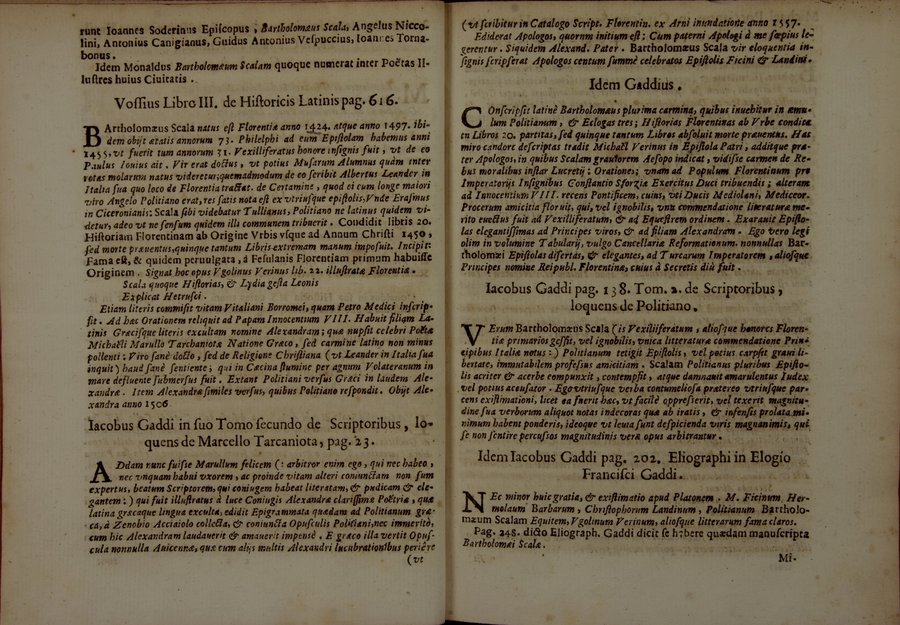 runt Ioannes Soderinus Episcopus , Bartholomæus Scala, Angelus Nicco-
lini, Antonius Canigianus, Guidus Antonius Vespuccius, Ioannes Torna-
bonus .
Idem Monaldus Bartholomæum Scalam quoque numerat inter Poëtas Il-
lustres huius Ciuitatis .
Vossius Libro III. de Historicis Latinis pag. 616.
BArtholomæus Scala natus est Florentiæ anno 1424. atque anno 1497. ibi-
dem obijt ætatis annorum 73. Philelphi ad eum Epistolam habemus anni
1455, vt fuerit tum annorum 31. Vexilliferatus honore insignis fuit , vt de eo
Paulus Iouius ait . Vir erat doctus , vt potius Musarum Alumnus quàm inter
rotas molarum natus videretur; quemadmodum de eo scribit Albertus Leander in
Italia sua quo loco de Florentia tractat. de Certamine , quod ei cum longe maiori
viro Angelo Politiano erat, res satis nota est ex vtriusque epistolis, Vnde Erasmus
in Ciceronianis: Scala sibi videbatur Tullianus, Politiano ne latinus quidem vi-
detur, adeo vt ne sensum quidem illi communem tribuerit . Condidit libris 20.
Historiam Florentinam ab Origine Vrbis vsque ad Annum Christi 1450 ,
sed morte præuentus, quinque tantum Libris extremam manum imposuit. Incipit:
Fama est, & quidem peruulgata , à Fesulanis Florentiam primum habuisse
Originem . Signat hoc opus Vgolinus Verinus lib. 22. illustratæ Florentiæ .
Scala quoque Historias, & Lydia gesta Leonis
Explicat Hetrusci .
Etiam literis commisit vitam Vitaliani Borromei, quam Petro Medici inscrip-
sit . Ad hæc Orationem reliquit ad Papam Innocentium VIII. Habuit filiam La-
tinis Græcisque literis excultam nomine Alexandram; quæ nupsit celebri Poëtæ
Michaëli Marullo Tarchaniotæ Natione Græco , sed carmine latino non minus
pollenti : Viro sanè docto , sed de Religione Christiana ( vt Leander in Italia sua
inquit ) haud sanè sentiente ; qui in Cæcina flumine per agnum Volateranum in
mare defluente submersus fuit . Extant Politiani versus Græci in laudem Ale-
xandræ . Item Alexandræ similes versus, quibus Politiano respondit . Obijt Ale-
xandra anno 1506
Iacobus Gaddi in suo Tomo secundo de Scriptoribus , lo-
quens de Marcello Tarcaniota , pag. 23.
ADdam nunc fuisse Marullum felicem ( : arbitror enim ego , qui nec habeo ,
nec vnquam habui vxorem , ac proinde vitam alteri coniunctam non sum
expertus, beatum Scriptorem, qui coniugem habeat literatam , & pudicam & ele-
gantem : ) qui fuit illustratus à luce Coniugis Alexandræ clarissimæ Poëtriæ , quæ
latina græcaque lingua exculta, edidit Epigrammata quædam ad Politianum græ-
ca , à Zenobio Acciaiolo collecta, & coniuncta Opusculis Politiani, nec immeritò,
cum hic Alexandram laudauerit & amauerit impensè . E græco illa vertit Opus-
cula nonnulla Auicennæ, quæ cum alijs multis Alexandri lucubrationibus periêre
(vt
( vt scribitur in Catalogo Script. Florentin. ex Arni inundatione anno 1557.
Ediderat Apologos, quorum initium est : Cum paterni Apologi à me sæpius le-
gerentur . Siquidem Alexand. Pater . Bartholomæus Scala vir eloquentia in-
signis scripserat Apologos centum summè celebratos Epistolis Ficini & Landini .
Idem Gaddius .
COnscripsit latinè Bartholomæus plurima carmina, quibus inuehitur in æmu-
lum Politianum , & Eclogas tres ; Historias Florentinas ab Vrbe condita
in Libros 20. partitas, sed quinque tantum Libros absoluit morte præuentus. Hac
miro candore descriptas tradit Michaël Verinus in Epistola Patri , additque præ-
ter Apologos, in quibus Scalam grauiorem Aesopo indicat , vidisse carmen de Re-
bus moralibus instar Lucretij : Orationes ; vnam ad Populum Florentinum pro
Imperatorijs Insignibus Constantio Sfortiæ Exercitus Duci tribuendis ; alteram
ad Innocentium VIII. recens Pontificem, cuius, vti Ducis Mediolani, Mediceor.
Procerum amicitia floruit , qui, vel ignobilis, vnæ commendatione literaturæ me-
rito euectus fuit ad Vexilliferatum, & ad Equestrem ordinem . Exarauit Episto-
las elegantissimas ad Principes viros, & ad filiam Alexandram . Ego vero legi
olim in volumine Tabularij, vulgo Cancellariæ Reformationum. nonnullas Bar-
tholomæi Epistolas disertas, & elegantes, ad Turcarum Imperatorem , aliosque
Principes nomine Reipubl. Florentinæ, cuius à Secretis diù fuit .
Iacobus Gaddi pag. 138. Tom. 2. de Scriptoribus ,
loquens de Politiano .
VErum Bartholomæus Scala ( is Vexilliferatum , aliosque honores Floren-
tiæ primarios gessit, vel ignobilis, vnica litteraturæ commendatione Prin-
cipibus Italiæ notus : ) Politianum tetigit Epistolis, vel potius carpsit graui li-
bertate, immutabilem professus amicitiam . Scalam Politianus pluribus Episto-
lis acriter & acerbe compunxit , contempsit, atque damnauit amarulentus Iudex
vel potius accusator . Ego vtriusque verba contumeliosa prætereo vtriusque par-
cens existimationi, licet ea fuerit hæc, vt facile oppresserit, vel texerit magnitu-
dine sua verborum aliquot notas indecoras quæ ab iratis , & infensis prolata mi-
nimum habent ponderis, ideoque vt leuia sunt despicienda viris magnanimis, qui
se non sentire percussos magnitudinis veræ opus arbitrantur .
Idem Iacobus Gaddi pag. 202. Eliographi in Elogio
Francisci Gaddi .
NEc minor huic gratia, & existimatio apud Platonem . M. Ficinum, Her-
molaum Barbarum , Christophorum Landinum , Politianum Bartholo-
mæum Scalam Equitem, Vgolinum Verinum, aliosque litterarum fama claros.
Pag. 248. dicto Eliograph. Gaddi dicit se habere quædam manuscripta
Bartholomæi Scalæ .
Mi-